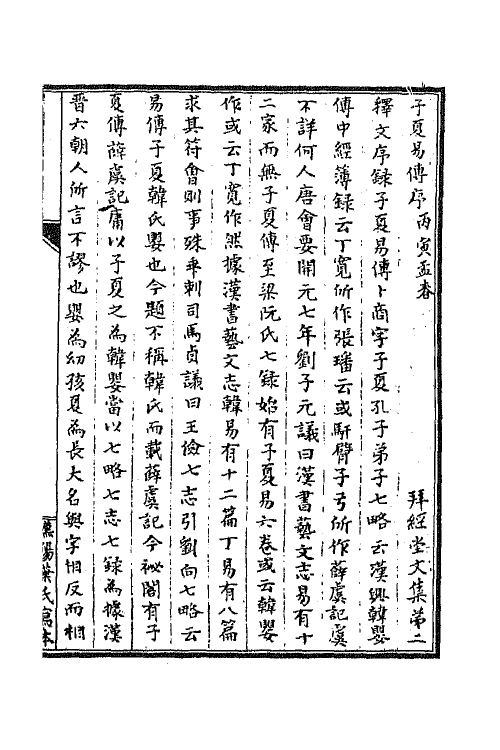 子夏易傳序丙寅孟春 拜經堂文集第二
釋文序録子夏易傳卜商字子夏孔子弟子七略云漢興韓嬰
傳中經簿録云丁寬所作張璠云或馯臂子弓所作薛虞記虞
不詳何人唐會要開元七年劉子元議曰漢書藝文志易有十
二家而無子夏傳至梁阮氏七録始有子夏易六卷或云韓嬰
作或云丁寬作然據漢書藝文志韓易有十二篇丁易有八篇
求其符會則事殊乖剌司馬貞議曰王儉七志引劉向七略云
易傳子夏韓氏嬰也今題不稱韓氏而載薛虞記今祕閣有子
夏傳薛虞記庸以子夏之為韓嬰當以七略七志七録為據漢
晉六朝人所言不謬也嬰為幼孩夏為長大名與字相反而相
漢陽葉氏寫本